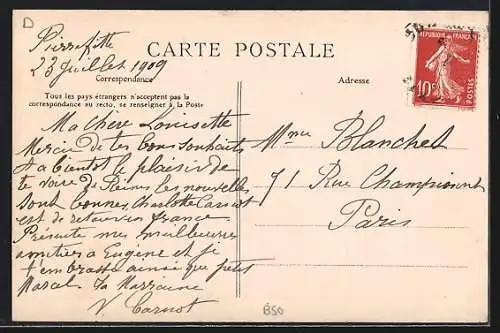 D
Pierrefitte
23 Juillet 1909
CARTE POSTALE
Correspondance
Adresse
Tous les pays étrangers n'acceptent pas la
correspondance au recto, se renseigner à la Poste
REPUBLIQUE FRANÇAISE
10c
POSTES
Ma chère Louisette
Merci de tes bons souhaits
et a bientot le plaisir de
te voir de Reims les nouvelles
sont bonnes, Charlotte Carnot
est de retour en france
Présente mes meilleures
amitiés a Eugène et je
t'embrasse ainsi que petit
Marcel ta Marraine
V. Carnot
Mme Blanchet
71 Rue Championnet
Paris
B50